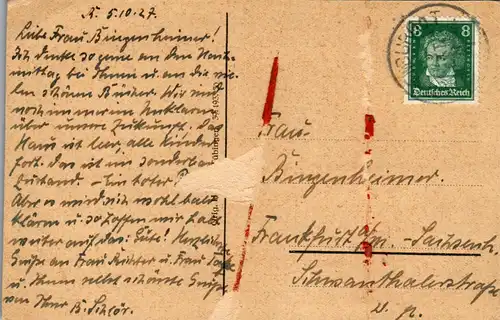 A. 5.10.27.
Liebe Frau Bingenheimer!
Ich denke so gerne an den Nach-
mittag bei Ihnen u. an die vie-
len schönen Bücher. Wir sind
noch immer im Unklaren
über unsere Zukunft. Das
Haus ist leer, alle Kinder
fort. Das ist ein sonderbarer
Zustand. – Ein toter?
Aber es wird sich wohl bald
klären u. so hoffen wir halt
weiter auf das Gute! Herzliche
Grüße an Frau Richter u. Frau
u. Ihnen selbst schönste Grüße
von Ihrer B. Schlör.
8 8
Deutsches Reich
Frau
Bingenheimer.
Frankfurt a/m. - Sachsenh.
Schwanthalerstraße